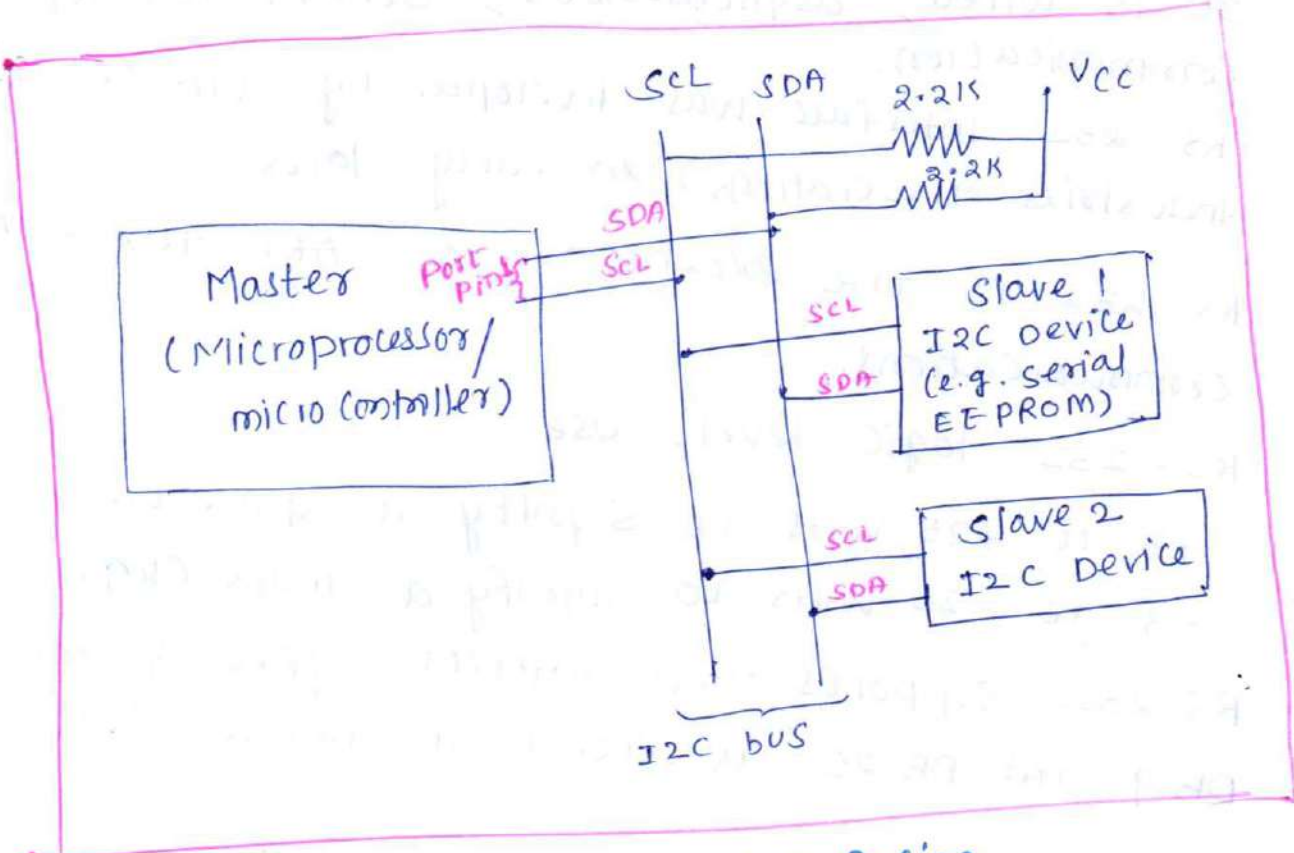 SCL SDA
2.2K
VCC
2.2K
SDA
SCL
Port
pins
Master
(Microprocessor/
micro controller)
SCL
SDA
Slave 1
I2C Device
(e.g. serial
EEPROM)
SCL
SDA
Slave 2
I2C Device
I2C bus